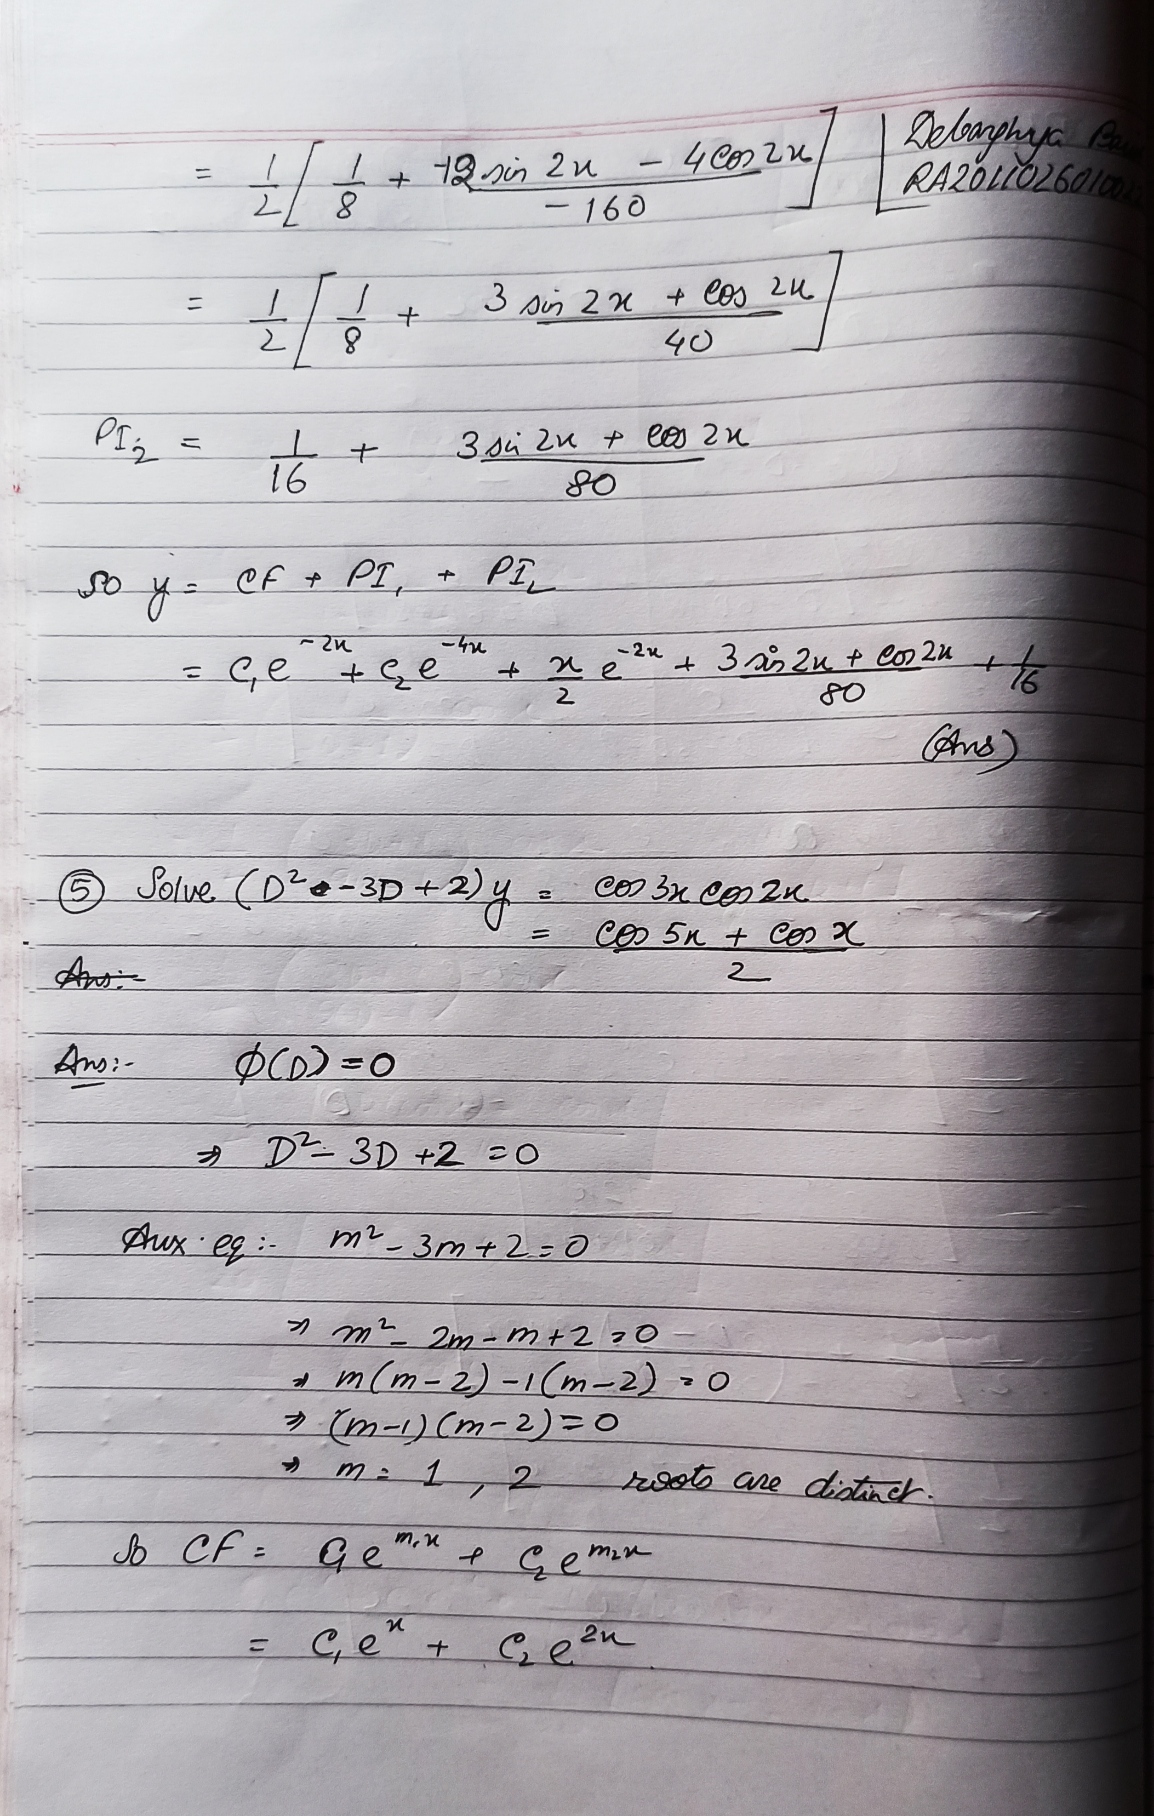 Debarghya
RA20110260100
= 1/2 [ 1/8 + -12 sin 2x - 4 cos 2x / -160 ]
= 1/2 [ 1/8 + 3 sin 2x + cos 2x / 40 ]
PI₂ = 1/16 + 3 sin 2x + cos 2x / 80
so y = CF + PI₁ + PI₂
= C₁e^-2x + C₂e^-4x + x/2 e^-2x + 3 sin 2x + cos 2x / 80 + 1/16
(Ans)
⑤ Solve (D² - 3D + 2) y = cos 3x cos 2x
= cos 5x + cos x / 2
Ans:-
Ans:- φ(D) = 0
⇒ D² - 3D + 2 = 0
Aux. eq :- m² - 3m + 2 = 0
⇒ m² - 2m - m + 2 = 0
⇒ m(m - 2) - 1(m - 2) = 0
⇒ (m - 1)(m - 2) = 0
⇒ m = 1, 2 roots are distinct.
So CF = C₁e^m₁x + C₂e^m₂x
= C₁e^x + C₂e^2x.